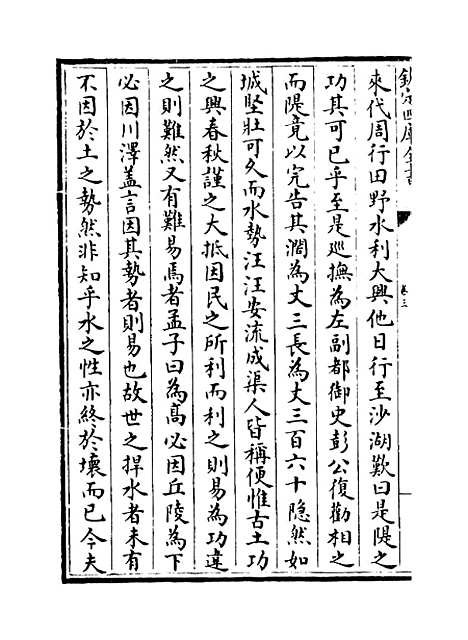 欽定四庫全書
卷三
來代周行田野水利大興他日行至沙湖歎曰是隄之
功其可已乎至是巡撫為左副都御史彭公復勸相之
而隄竟以完告其濶為丈三長為丈三百六十隱然如
城堅壯可久而水勢汪汪安流成渠人皆稱便惟古土功
之興春秋謹之大抵因民之所利而利之則易為功違
之則難然又有難易焉者孟子曰為髙必因丘陵為下
必因川澤蓋言因其勢者則易也故世之捍水者未有
不因於土之勢然非知乎水之性亦終於壞而已今夫